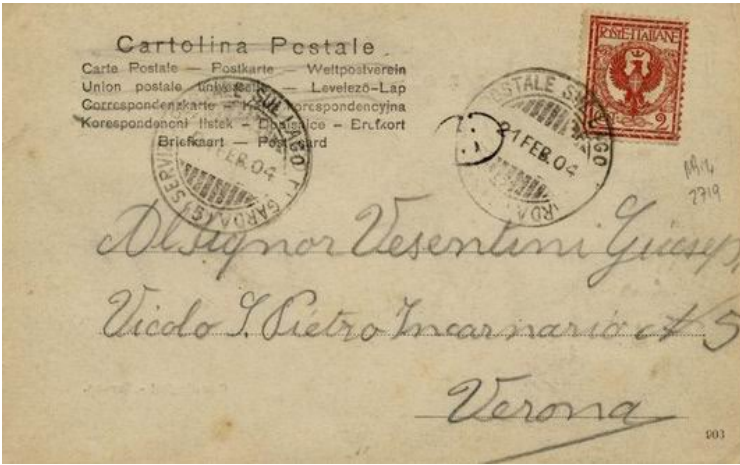 Cartolina Postale
Carte Postale — Postkarte — Weltpostverein
Union postale universelle — Levelező-Lap
Correspondenzkarte — Korespondencyjna
Korespondencni listek — Dopisnice — Brefkort
Briefkaart — Post card
SERVIZIO POSTALE SUL LAGO DI GARDA (5)
21 FEB. 04
POSTALE SUL LAGO
21 FEB. 04
GARDA
POSTE ITALIANE
2
2719
Al Signor Vesentini Giusep
Vicolo S. Pietro Incarnario N 5
Verona
903